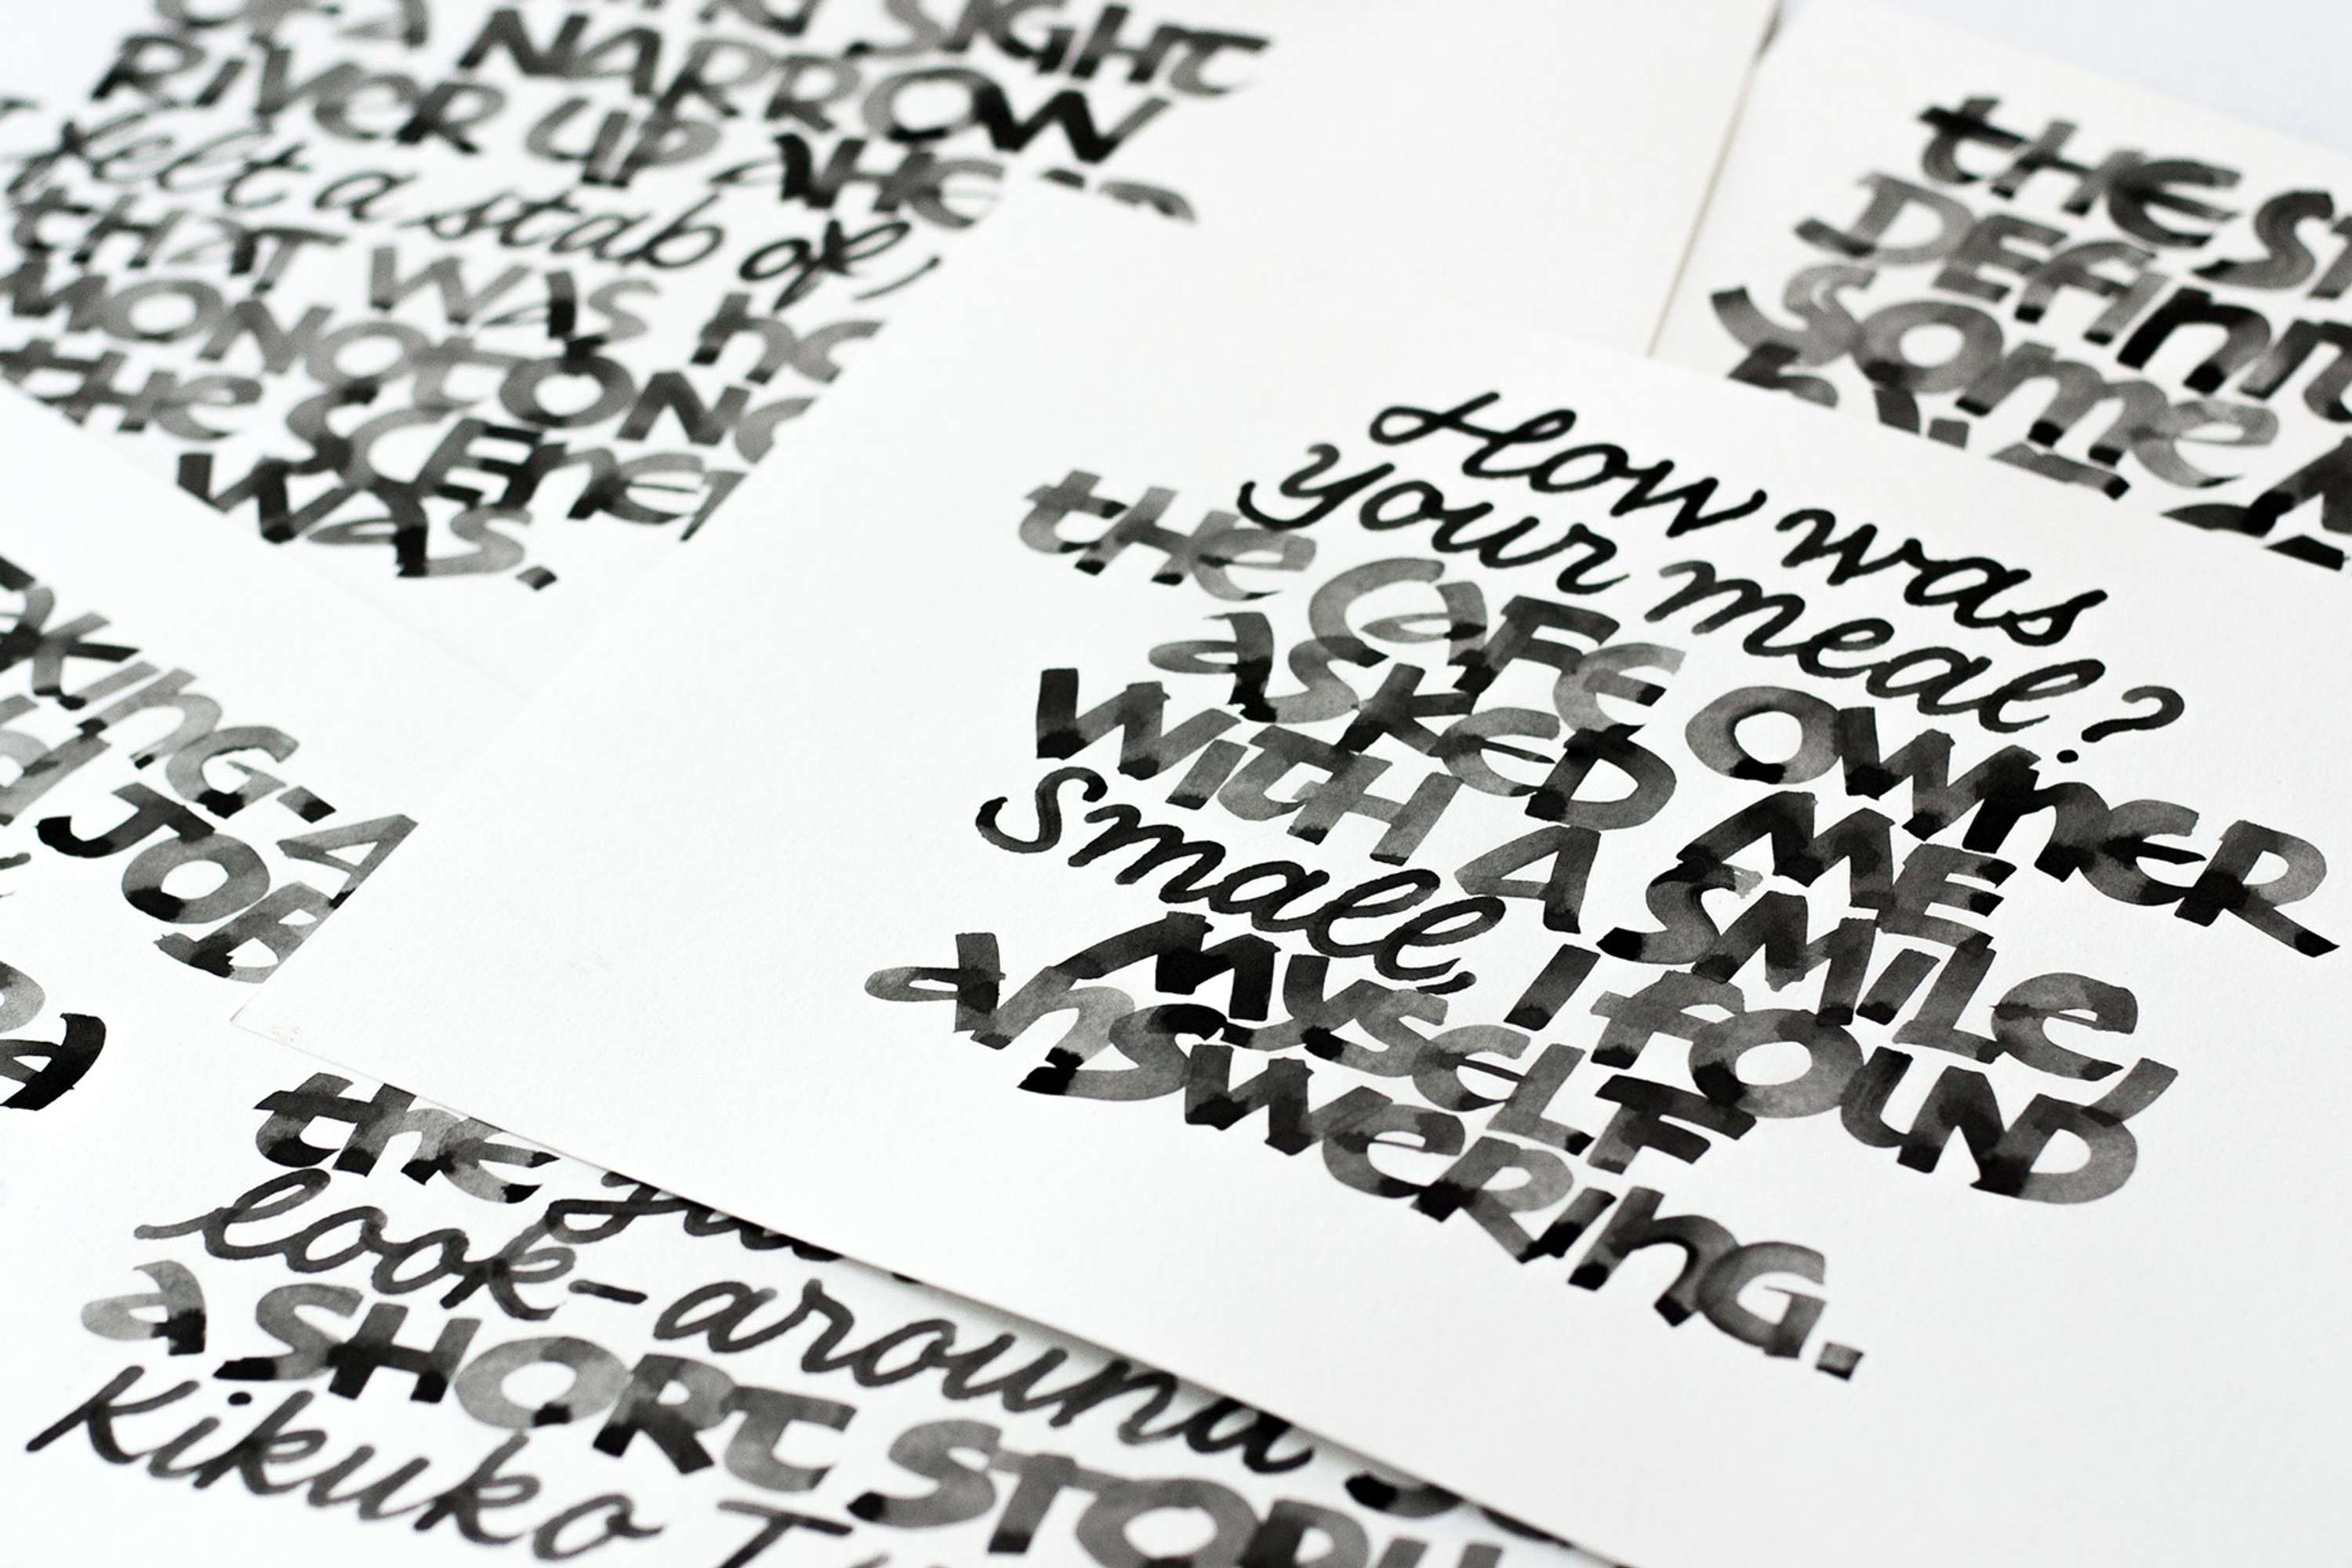 SIGHT
OF A NARROW
RIVER UP AHE
felt a stab of
THAT WAS
MONOTON
THE SCENE
WAS.
THE
SOME
How was
your meal?
THE CAFE OWNER
ASKED ME
WITH A SMILE,
Small, I FOUND
MYSELF
ANSWERING.
KING-A
JOB
A
the
look-around
a SHORT STORY
Kikuko T